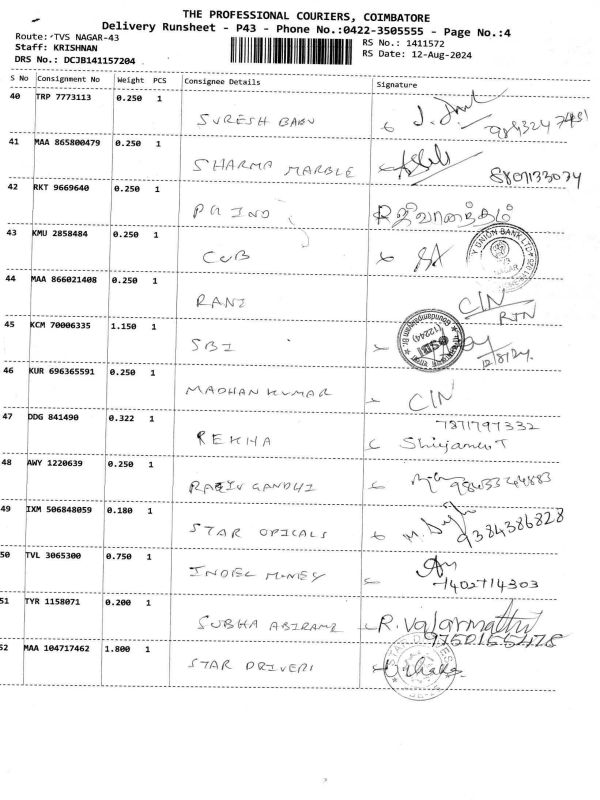 THE PROFESSIONAL COURIERS, COIMBATORE
Delivery Runsheet - P43 - Phone No.:0422-3505555 - Page No.:4
Route: TVS NAGAR-43
Staff: KRISHNAN
DRS No.: DCJB141157204
RS No.: 1411572
RS Date: 12-Aug-2024
S No Consignment No Weight PCS Consignee Details Signature
40 TRP 7773113 0.250 1
SURESH BABU
41 MAA 865800479 0.250 1
SHARMA MARBLE
42 RKT 9669640 0.250 1
43 KMU 2858484 0.250 1
CUB
44 MAA 866021408 0.250 1
RANI CIN
RTN
45 KCM 70006335 1.150 1
SBI
12/8/24
46 KUR 696365591 0.250 1
MADHAN KUMAR CIN
47 DDG 841490 0.322 1 7871797332
REKHA
48 AWY 1220639 0.250 1
RAJIV GANDHI
49 IXM 506848059 0.180 1
STAR OPICALS 9384386828
50 TVL 3065300 0.750 1
INDEL MONEY 7402714303
51 TYR 1158071 0.200 1
SUBHA ABIRAMI R. Valarmathi
52 MAA 104717462 1.800 1
STAR DRIVERS